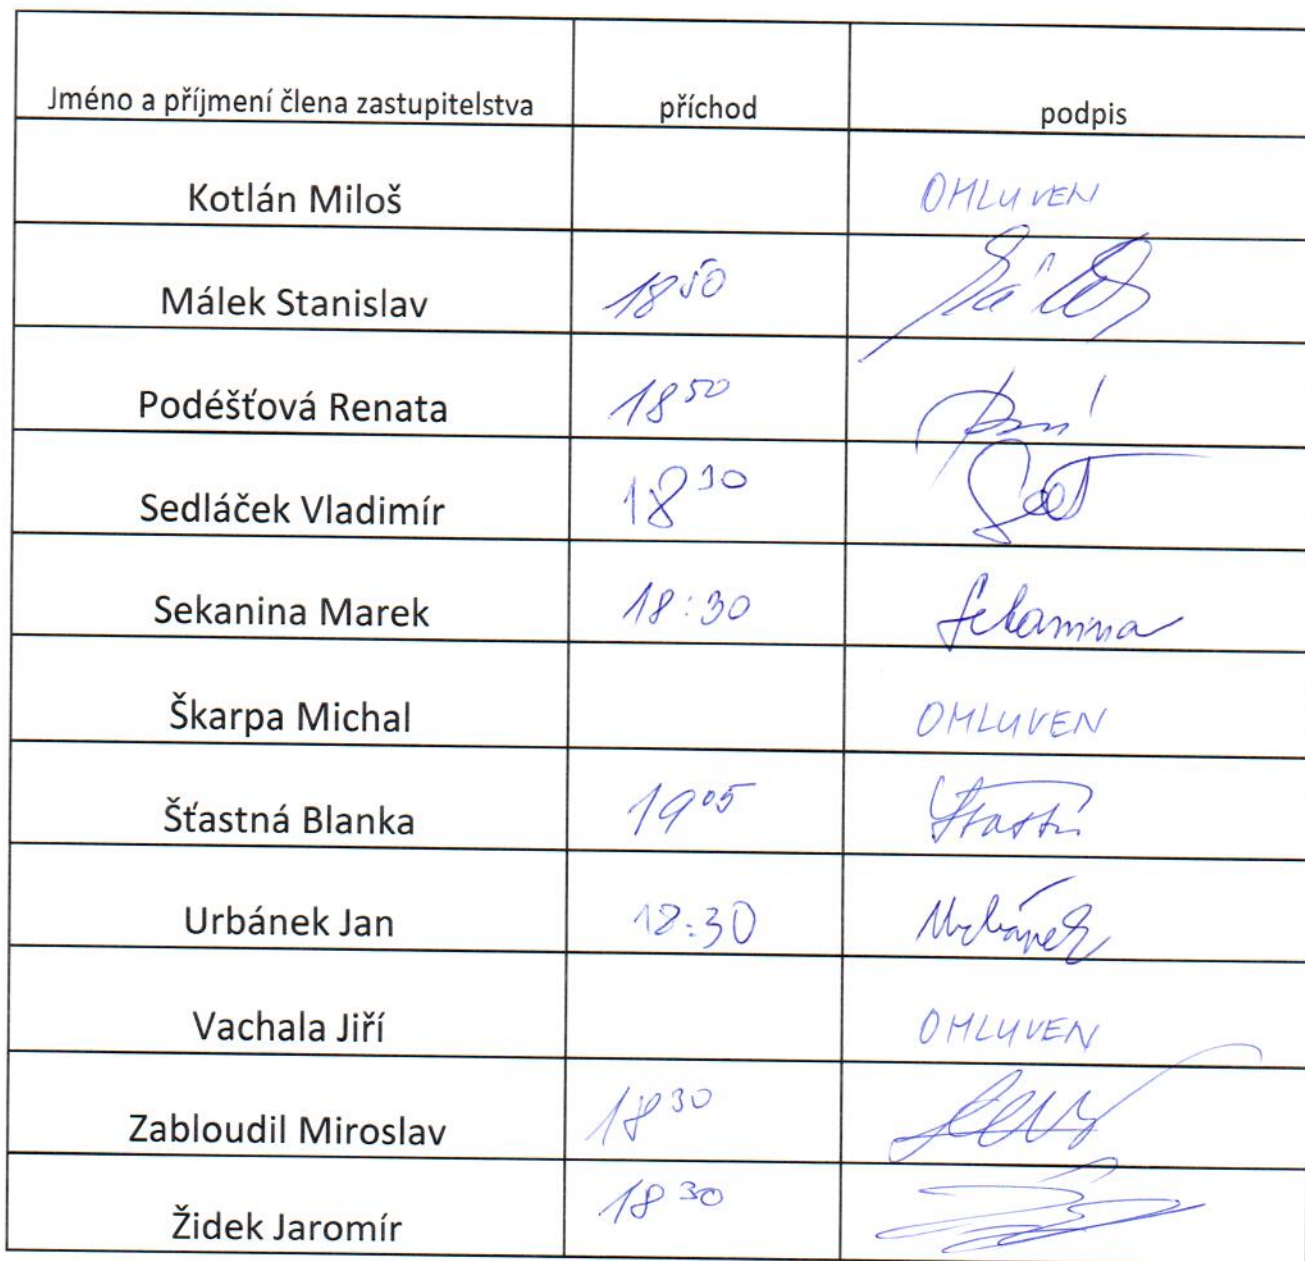 Jméno a příjmení člena zastupitelstva příchod podpis
Kotlán Miloš OMLUVEN
Málek Stanislav 18 50
Poděšťová Renata 18 50
Sedláček Vladimír 18 30
Sekanina Marek 18:30 Sekanina
Škarpa Michal OMLUVEN
Šťastná Blanka 19 05
Urbánek Jan 18:30 Urbánek
Vachala Jiří OMLUVEN
Zabloudil Miroslav 18 30
Židek Jaromír 18 30